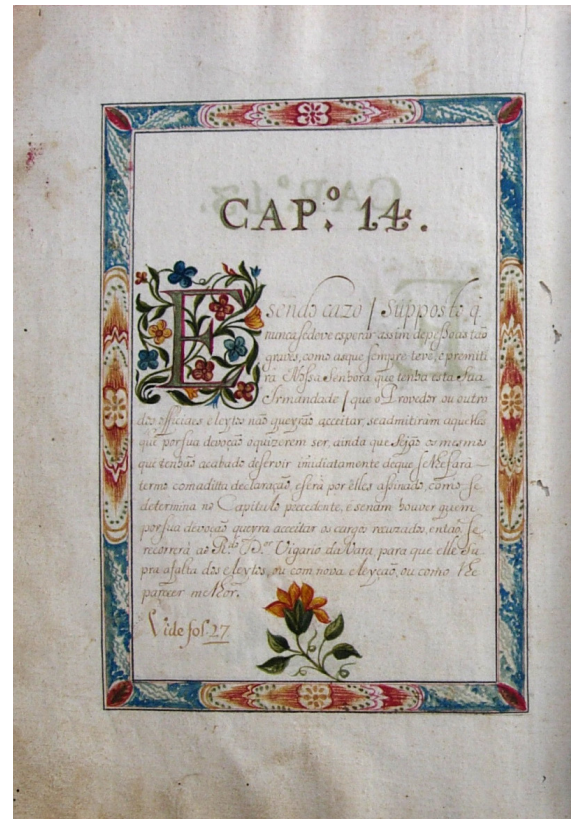 CAP.º 14.
E sendo cazo ſ supposto q̃
nunca se dove esperar assim de peſsoas tão
graves, como as que sempre teve, e promiti
ra Noſsa Senhora que tenha esta sua
Irmandade ſ que o Provedor, ou outro
dos officiaes eleytos não queyrão acceitar, se admitiràm aquelles
que por sua devoção o quizerem ser, ainda que sejão os mesmos
que tenhão acabado de servir imidiatamente de que se lhe fará
termo com a ditta declaração, e será por elles aſsinado, como se
determina no Capitulo precedente, e senàm houver quem
por sua devoção queyra acceitar os cargos recuzados, então se
recorerá ao R.do D.or Vigario da Vara, para que elle su
pra a falta dos eleytos, ou com nova eleyção, ou como lhe
parecer melhor.
Vide fol. 27